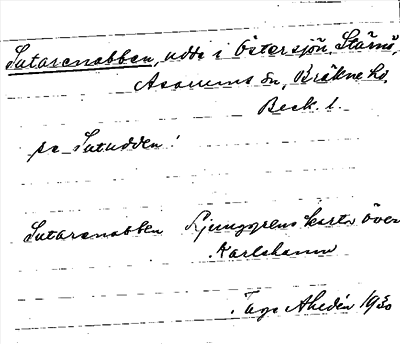 Sutarenabben, udde i Östersjön, Stärnö,
Asarums sn, Bräkne hd,
Bleck. l.
se Sutudden!
Sutarenabben Ljunggrens karta över
Karlshamn
Tage Ahldén 1930